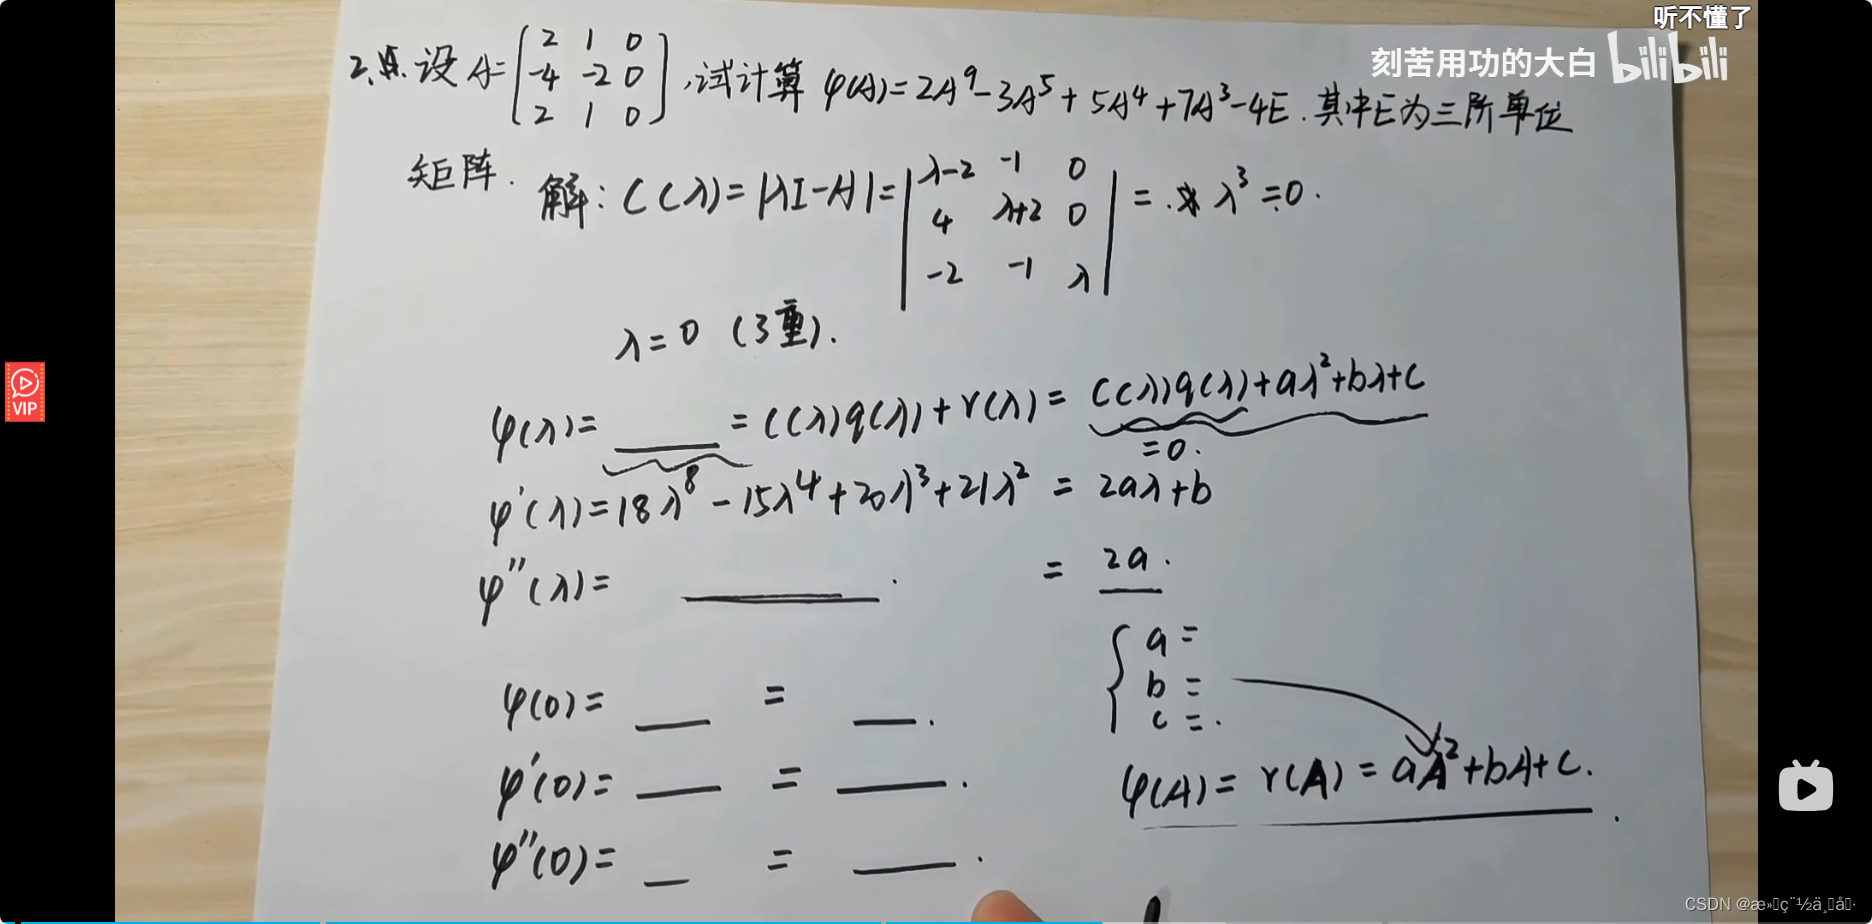 听不懂了
刻苦用功的大白 bilibili
2、 设A=[2 1 0
-4 -2 0
2 1 0] ,试计算 φ(A)=2A⁹-3A⁵+5A⁴+7A³-4E.其中E为三阶单位
矩阵. 解: C(λ)=|λI-A|=|λ-2 -1 0
4 λ+2 0
-2 -1 λ| = λ³=0.
λ=0 (3重).
φ(λ)= ____ =C(λ)q(λ)+r(λ)= C(λ)q(λ)+aλ²+bλ+c
=0.
φ'(λ)=18λ⁸-15λ⁴+20λ³+21λ² = 2aλ+b
φ''(λ)= ____ . = 2a.
{a=
b=
c=.
φ(0)= ___ = ___.
φ'(0)= ___ = ___.
φ(A)= r(A)= aA²+bA+c.
φ''(0)= __ = ___.
VIP
CSDN @æ»